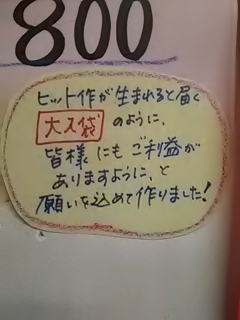 800
ヒット作が生まれると届く
大入袋 のように、
皆様にもご利益が
ありますように、と
願いを込めて作りました!